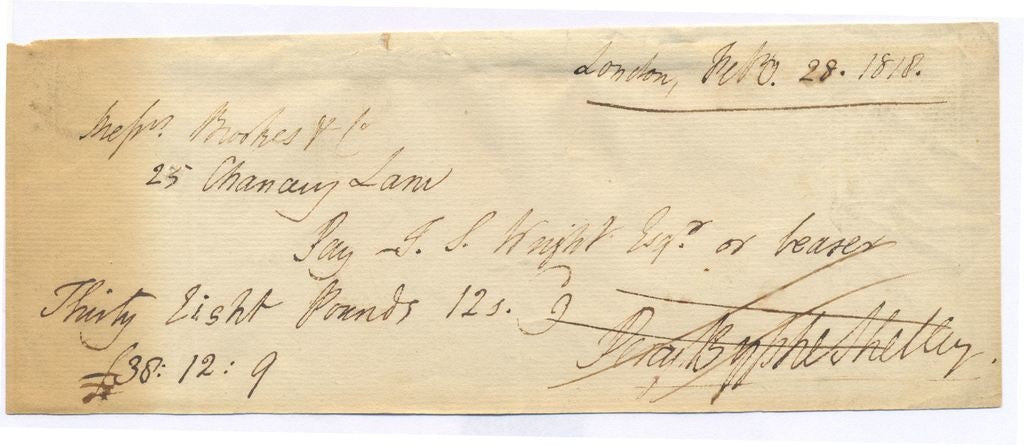 London, Feb. 28. 1818.
Messrs. Brookes & Co
25 Chancery Lane
Pay I. S. Wright Esqr. or bearer
Thirty Eight Pounds 12s. 9
Percy Bysshe Shelley.
£38: 12: 9